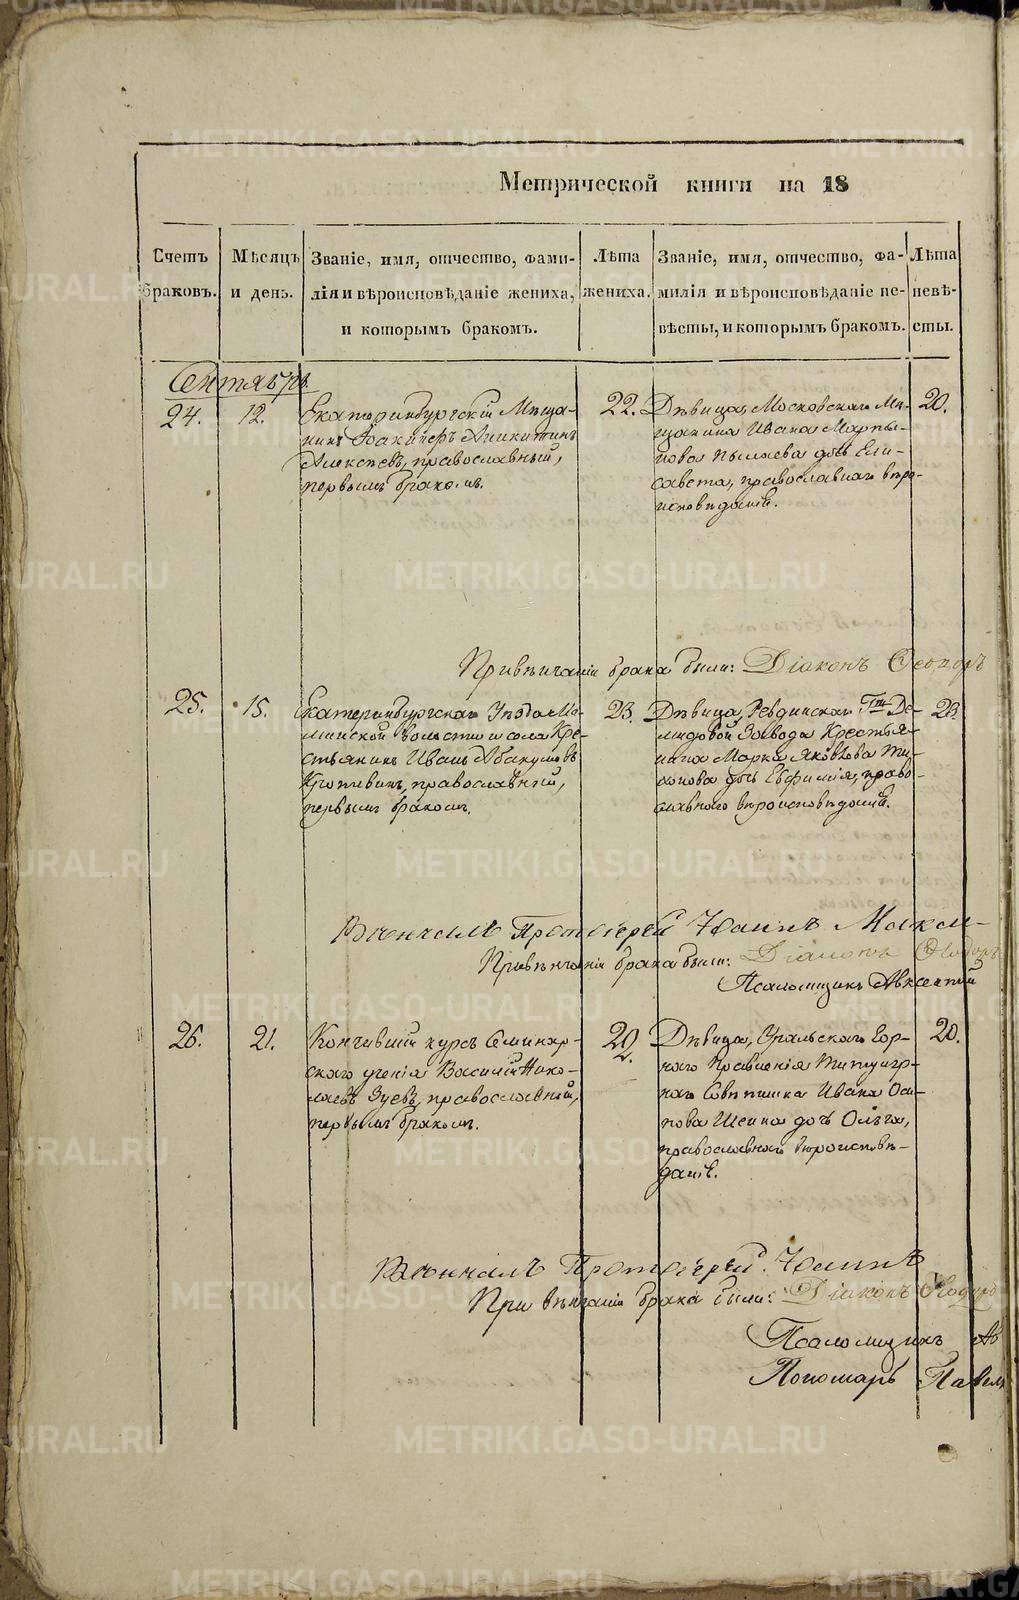 METRIKI.GASO-URAL.RU
Метрической книги на 18
Счетъ браковъ.
Мѣсяцъ и день.
Званіе, имя, отчество, фами-
лія и вѣроисповѣданіе жениха,
и которымъ бракомъ.
Лѣта жениха.
Званіе, имя, отчество, фа-
милія и вѣроисповѣданіе не-
вѣсты, и которымъ бракомъ.
Лѣта невѣ-
сты.
Сентябрь
24.
12.
Екатеринбургскій Мѣща-
нинъ Никитинъ
Алексѣевъ, православный,
первымъ бракомъ.
22.
Дѣвица, Московскаго Мѣ-
щанина Ивана Марты-
нова дочь Ели-
савета, православнаго вѣро-
исповѣданія.
20.
При вѣнчаніи брака были: Діаконъ Ѳеодоръ
25.
15.
Екатеринбургскаго Уѣзда
волости и села Кре-
стьянинъ Иванъ Абакумовъ
православный,
первымъ бракомъ.
23.
Дѣвица, Ревдинскаго Гна Де-
мидова Завода Крестья-
нина Марка Яковлева Ти-
хонова дочь Евфимія, право-
славнаго вѣроисповѣданія.
23.
Вѣнчалъ Протоіерей Іоаннъ
При вѣнчаніи брака были: Діаконъ Ѳеодоръ
Псаломщикъ Авксентій
26.
21.
Кончившій курсъ Семинар-
скаго ученія Василій Нико-
лаевъ Зуевъ, православный,
первымъ бракомъ.
22.
Дѣвица, Уральскаго Гор-
наго Правленія Титуляр-
наго Совѣтника Ивана Оси-
пова Шеина дочь Ольга,
православнаго вѣроисповѣ-
данія.
20.
Вѣнчалъ Протоіерей Іоаннъ
При вѣнчаніи брака были: Діаконъ Ѳеодоръ
Псаломщикъ Ав
Пономарь Павелъ